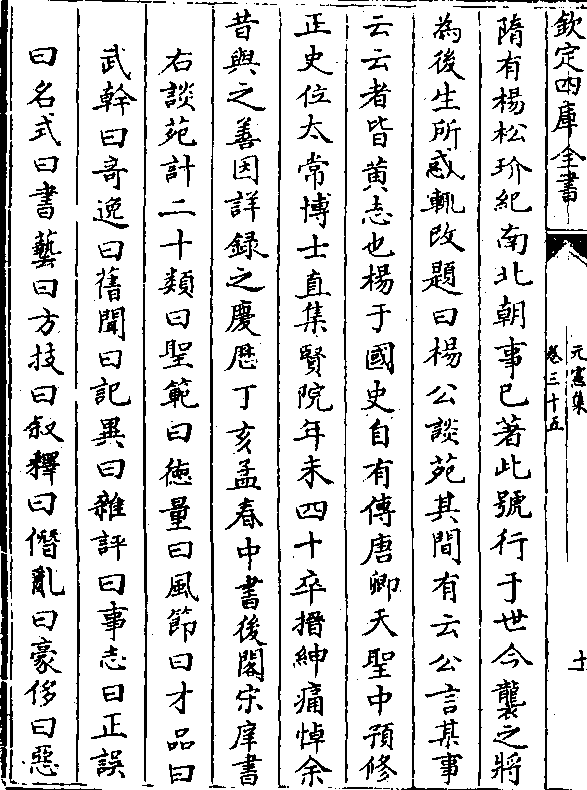 欽定四庫全書
元憲集
卷三十五
十
隋有楊松玠紀南北朝事已著此號行于世今襲之將
為後生所惑輒改題曰楊公談苑其間有云公言某事
云云者皆黄志也楊于國史自有傳唐卿天聖中預修
正史位太常博士直集賢院年未四十卒搢紳痛悼余
昔與之善因詳録之慶厯丁亥孟春中書後閣宋庠書
右談苑計二十類曰聖範曰徳量曰風節曰才品曰
武幹曰奇逸曰舊聞曰記異曰雜評曰事志曰正誤
曰名式曰書藝曰方技曰叙釋曰僭亂曰豪侈曰惡